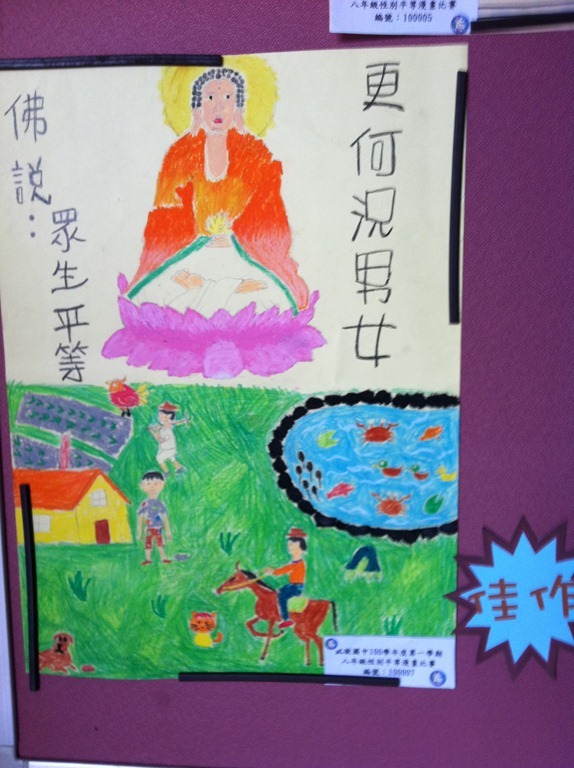 八年級性別平等漫畫比賽
編號：100005
佛說：
眾生平等
更何況男女
佳作
武崙國中100學年度第一學期
八年級性別平等漫畫比賽
編號：100007